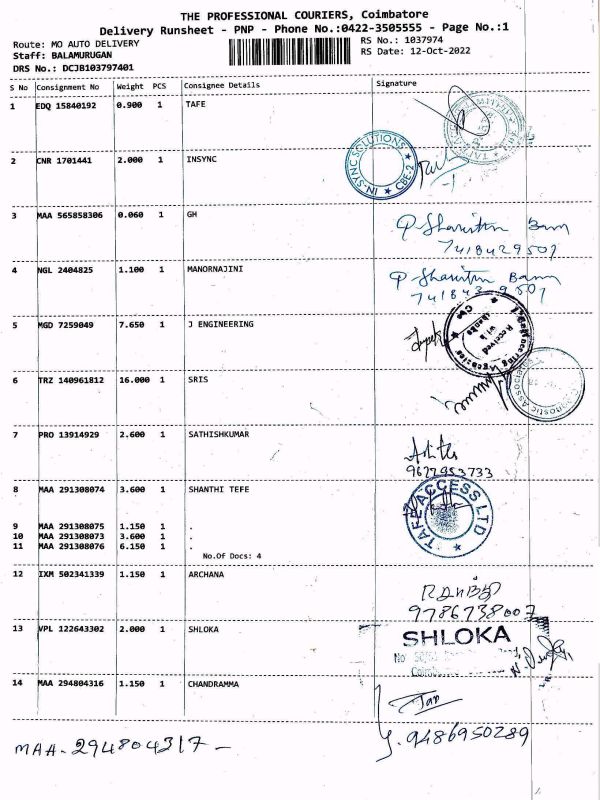 THE PROFESSIONAL COURIERS, Coimbatore
Delivery Runsheet - PNP - Phone No.:0422-3505555 - Page No.:1
Route: MO AUTO DELIVERY RS No.: 1037974
Staff: BALAMURUGAN RS Date: 12-Oct-2022
DRS No.: DCJB103797401
S No Consignment No Weight PCS Consignee Details Signature
1 EDQ 15840192 0.900 1 TAFE
2 CNR 1701441 2.000 1 INSYNC
IN-SYNC SOLUTIONS CBE-2
3 MAA 565858306 0.060 1 GH
7418429507
4 NGL 2404825 1.100 1 MANORNAJINI
5 MGD 7259049 7.650 1 J ENGINEERING
Received with thanks
6 TRZ 140961812 16.000 1 SRIS
7 PRO 13914929 2.600 1 SATHISHKUMAR
9627953733
8 MAA 291308074 3.600 1 SHANTHI TEFE
TAFE ACCESS LTD
9 MAA 291308075 1.150 1 .
10 MAA 291308073 3.600 1 .
11 MAA 291308076 6.150 1 .
No.Of Docs: 4
12 IXM 502341339 1.150 1 ARCHANA
9786738007
13 VPL 122643302 2.000 1 SHLOKA
SHLOKA
No
14 MAA 294804316 1.150 1 CHANDRAMMA
9486950289
MAA-294804317-